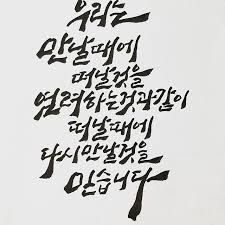 우리는
만날때에
떠날것을
염려하는것과같이
떠날때에
다시만날것을
믿습니다